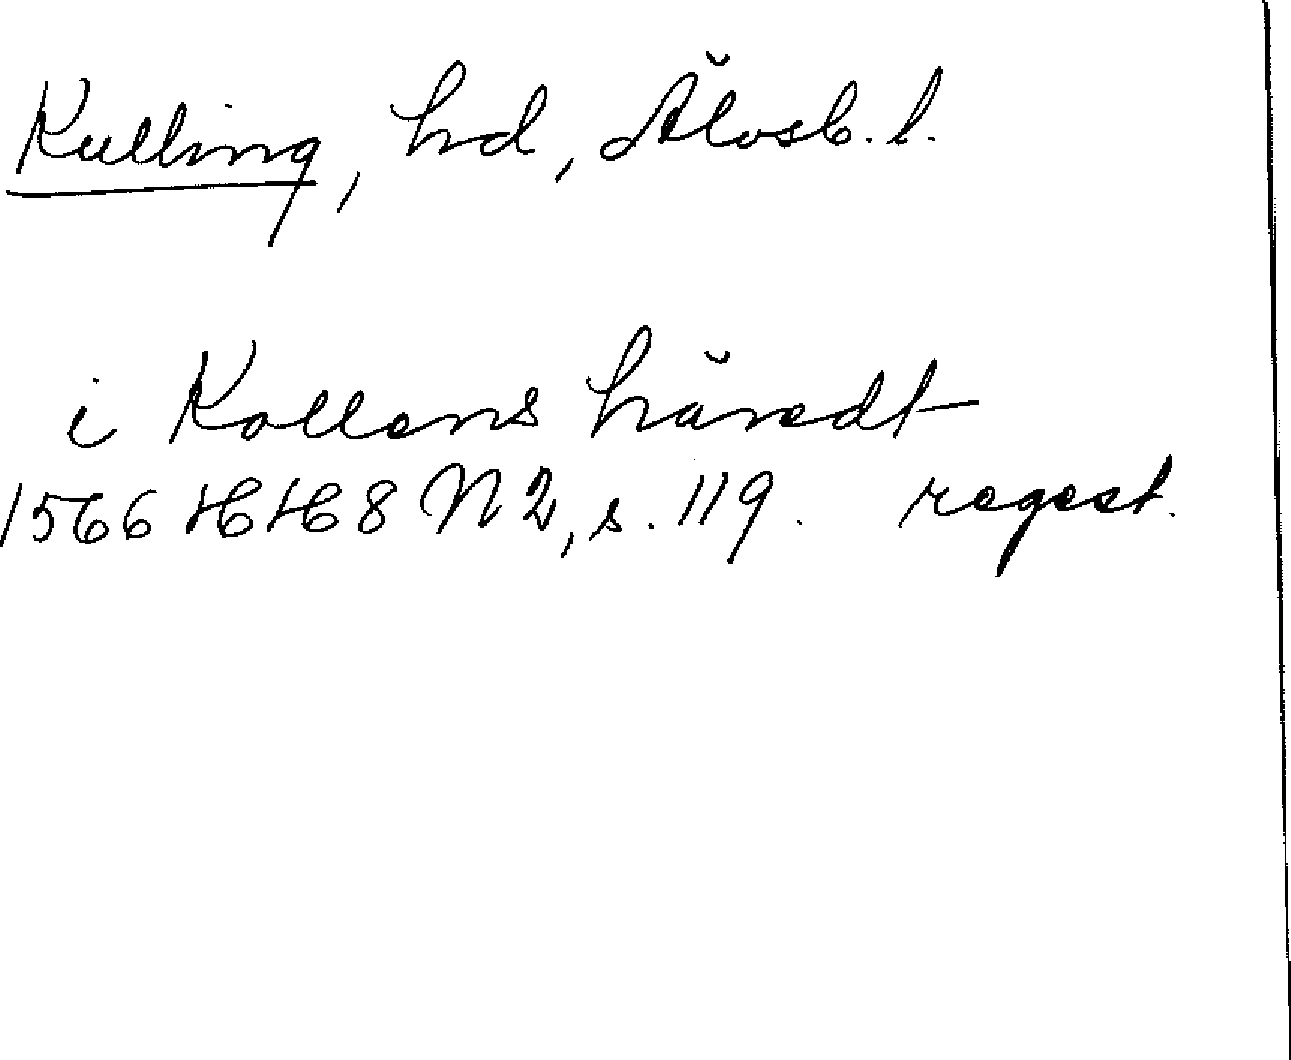 Kulling, hd, Älvsb. l.
i Kollens häredt
1566 HH 8 N 2, s. 119. regest.